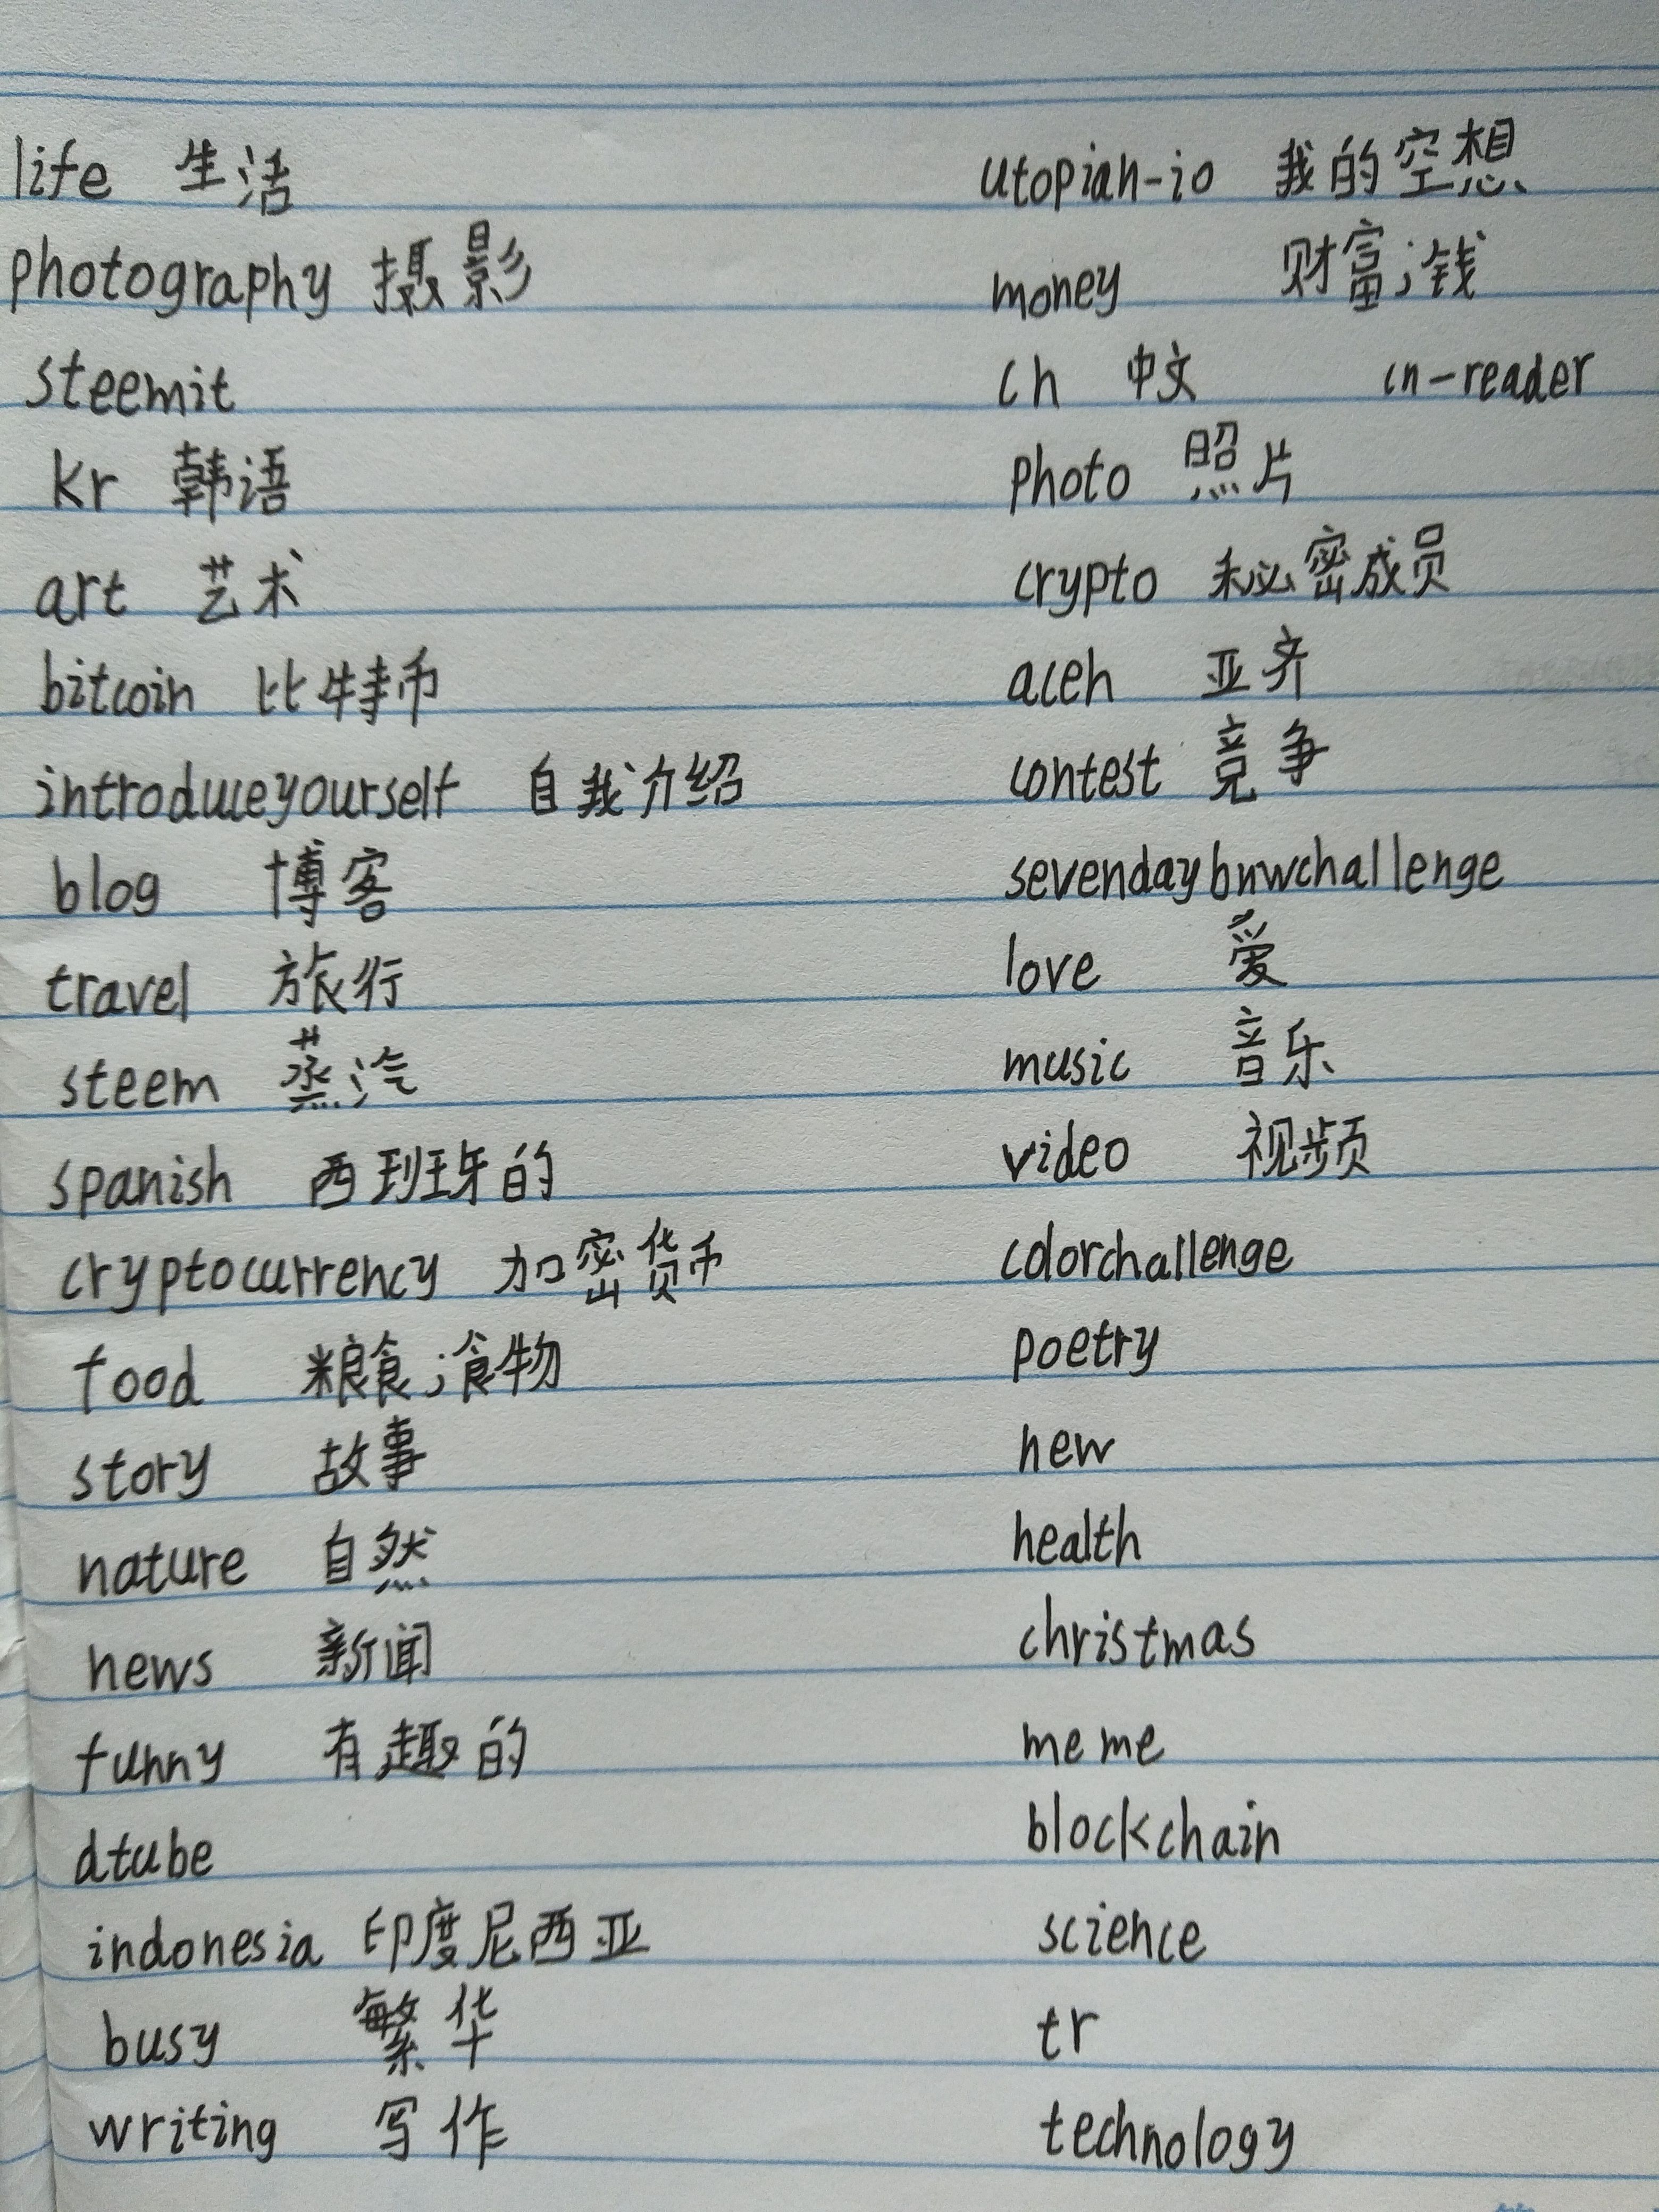 life 生活
photography 摄影
steemit
kr 韩语
art 艺术
bitcoin 比特币
introduceyourself 自我介绍
blog 博客
travel 旅行
steem 蒸汽
spanish 西班牙的
cryptocurrency 加密货币
food 粮食;食物
story 故事
nature 自然
news 新闻
funny 有趣的
dtube
indonesia 印度尼西亚
busy 繁华
writing 写作
utopian-io 我的空想
money 财富;钱
cn 中文 cn-reader
photo 照片
crypto 秘密成员
aceh 亚齐
contest 竞争
sevendaybnwchallenge
love 爱
music 音乐
video 视频
colorchallenge
poetry
new
health
christmas
meme
blockchain
science
tr
technology